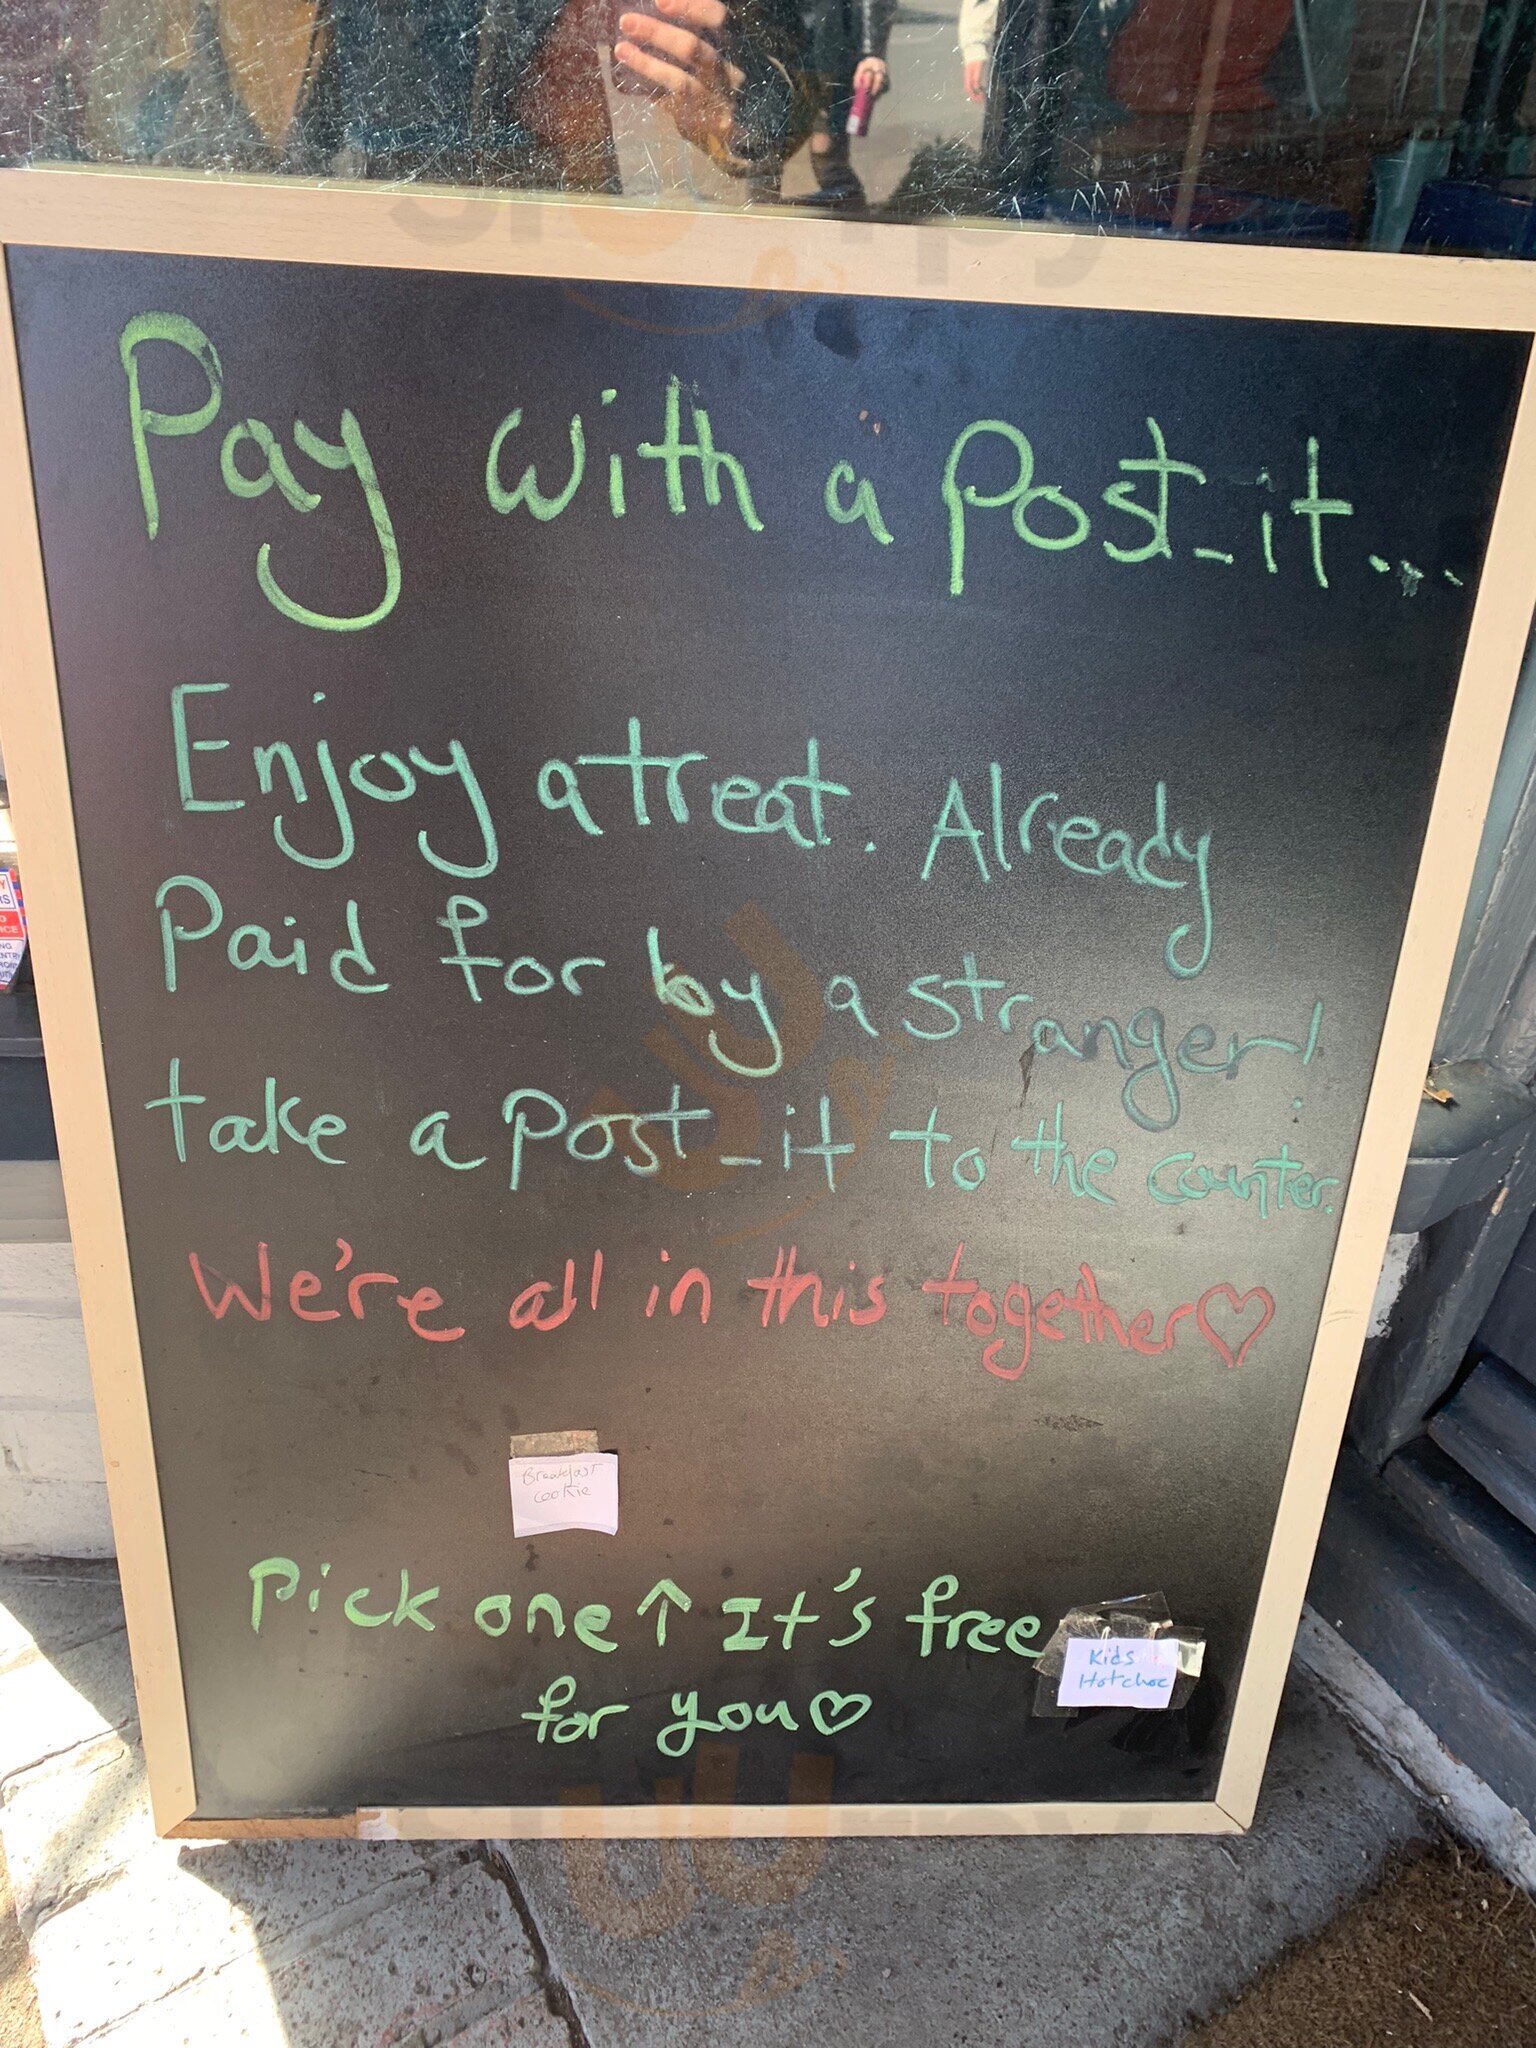 Pay with a Post-it...
Enjoy a treat. Already
Paid for by a stranger!
take a post-it to the counter.
We're all in this together♡
Breakfast
cookie
Pick one ↑ It's free
for you♡
Kids
Hot choc